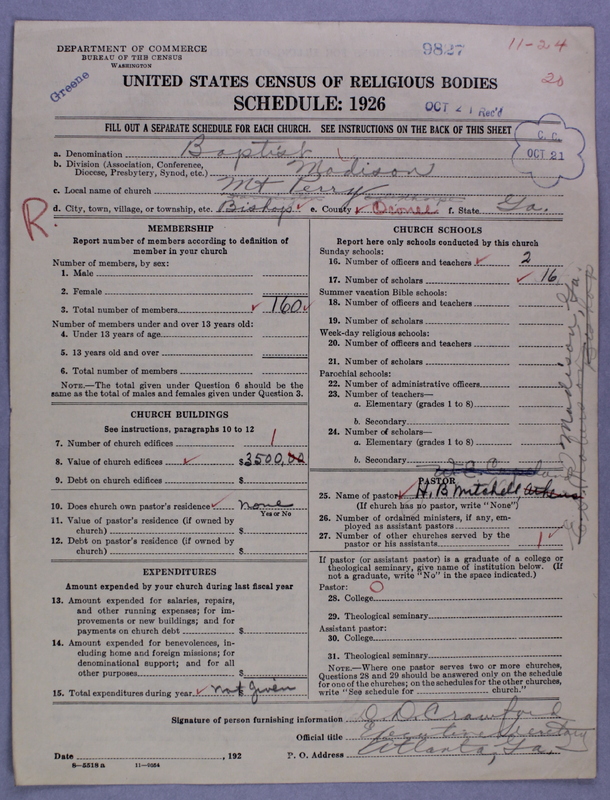 DEPARTMENT OF COMMERCE
BUREAU OF THE CENSUS
WASHINGTON
9827
11-24
20
Greene
UNITED STATES CENSUS OF RELIGIOUS BODIES
SCHEDULE: 1926
OCT 21 Rec'd
C. C.
OCT 21
FILL OUT A SEPARATE SCHEDULE FOR EACH CHURCH. SEE INSTRUCTIONS ON THE BACK OF THIS SHEET
a. Denomination Baptist
b. Division (Association, Conference, Diocese, Presbytery, Synod, etc.) Madison
c. Local name of church Mt Perry
d. City, town, village, or township, etc. Bishop e. County Oconee f. State Ga.
R.
MEMBERSHIP
Report number of members according to definition of
member in your church
Number of members, by sex:
1. Male
2. Female
3. Total number of members 160
Number of members under and over 13 years old:
4. Under 13 years of age
5. 13 years old and over
6. Total number of members
NOTE.—The total given under Question 6 should be the
same as the total of males and females given under Question 3.
CHURCH BUILDINGS
See instructions, paragraphs 10 to 12
7. Number of church edifices 1
8. Value of church edifices $3500.00
9. Debt on church edifices $
10. Does church own pastor's residence? None
Yes or No
11. Value of pastor's residence (if owned by
church) $
12. Debt on pastor's residence (if owned by
church) $
EXPENDITURES
Amount expended by your church during last fiscal year
13. Amount expended for salaries, repairs,
and other running expenses; for im-
provements or new buildings; and for
payments on church debt $
14. Amount expended for benevolences, in-
cluding home and foreign missions; for
denominational support; and for all
other purposes $
15. Total expenditures during year not given
CHURCH SCHOOLS
Report here only schools conducted by this church
Sunday schools:
16. Number of officers and teachers 2
17. Number of scholars 16
Summer vacation Bible schools:
18. Number of officers and teachers
19. Number of scholars
Week-day religious schools:
20. Number of officers and teachers
21. Number of scholars
Parochial schools:
22. Number of administrative officers
23. Number of teachers—
a. Elementary (grades 1 to 8)
b. Secondary
24. Number of scholars—
a. Elementary (grades 1 to 8)
b. Secondary
PASTOR
25. Name of pastor H. B. Mitchell, Athens
(If church has no pastor, write "None")
26. Number of ordained ministers, if any, em-
ployed as assistant pastors
27. Number of other churches served by the
pastor or his assistants 1
If pastor (or assistant pastor) is a graduate of a college or
theological seminary, give name of institution below. (If
not a graduate, write "No" in the space indicated.)
Pastor: O
28. College
29. Theological seminary
Assistant pastor:
30. College
31. Theological seminary
NOTE.—Where one pastor serves two or more churches,
Questions 28 and 29 should be answered only on the schedule
for one of the churches; on the schedules for the other churches,
write "See schedule for church."
Madison, Ga.
Bishop
Signature of person furnishing information O. D. Crawford
Official title Executive Secretary
Date , 192 P. O. Address Atlanta, Ga.
8—5518 a 11—9264